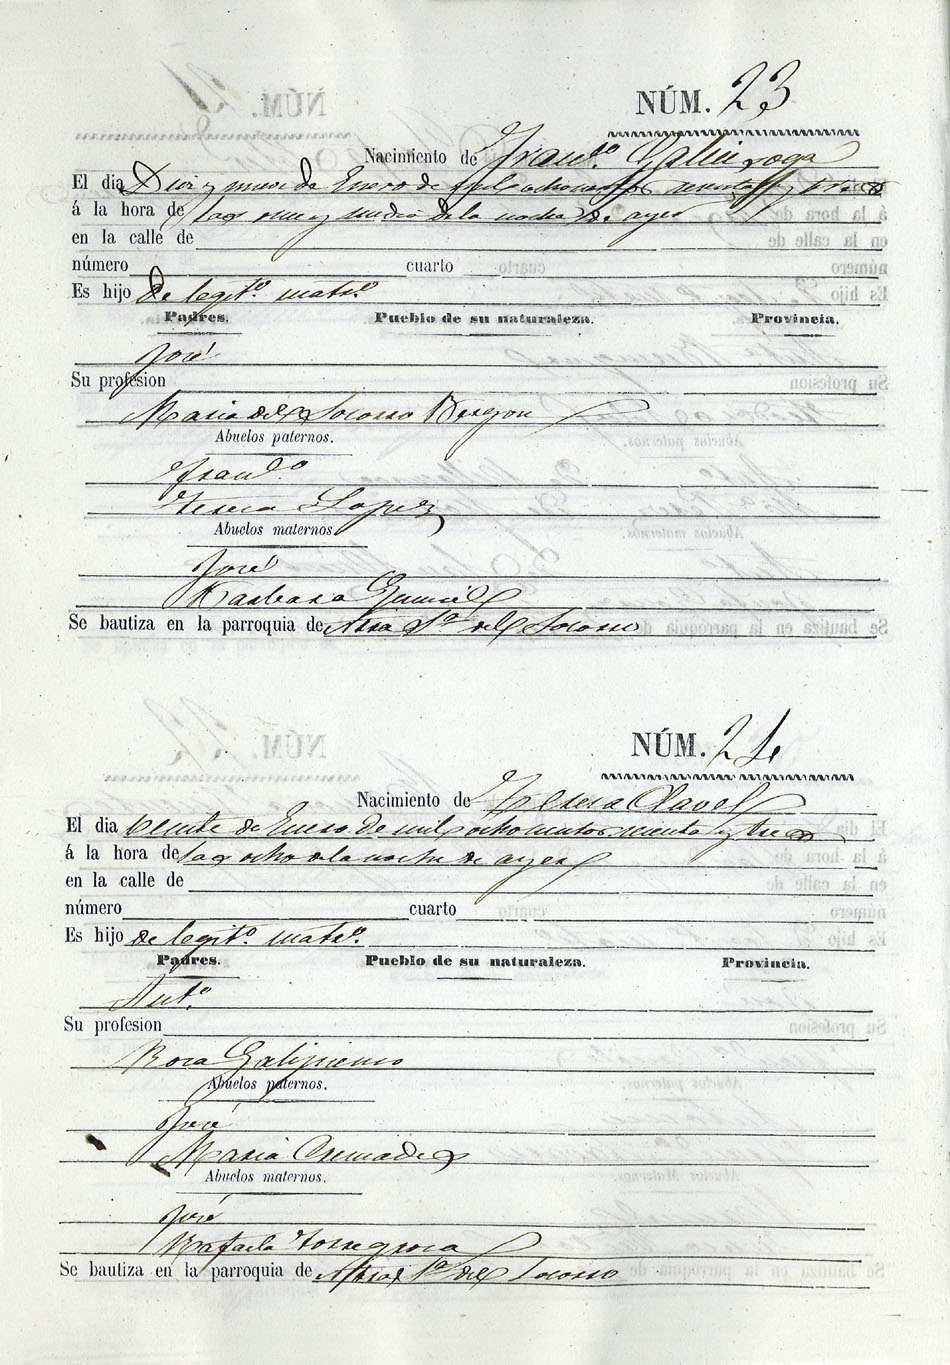 NÚM. 23
Nacimiento de Fran.co
El dia Diez y nueve de Enero de mil ochocientos setenta y tres
á la hora de las once y media de la noche de ayer
en la calle de
número cuarto
Es hijo de legit.o matr.o
Padres. Pueblo de su naturaleza. Provincia.
José
Su profesion
Maria del Socorro
Abuelos paternos.
Fran.co
Teresa Lopez
Abuelos maternos
José
Barbara
Se bautiza en la parroquia de Ntra S.ra del Socorro
NÚM. 24
Nacimiento de Teresa Clavel
El dia Veinte de Enero de mil ochocientos setenta y tres
á la hora de las ocho de la noche de ayer
en la calle de
número cuarto
Es hijo de legit.o matr.o
Padres. Pueblo de su naturaleza. Provincia.
Ant.o
Su profesion
Rosa Galipienso
Abuelos paternos.
José
Maria Cremades
Abuelos maternos.
José
Rafaela Torregrosa
Se bautiza en la parroquia de Ntra S.ra del Socorro